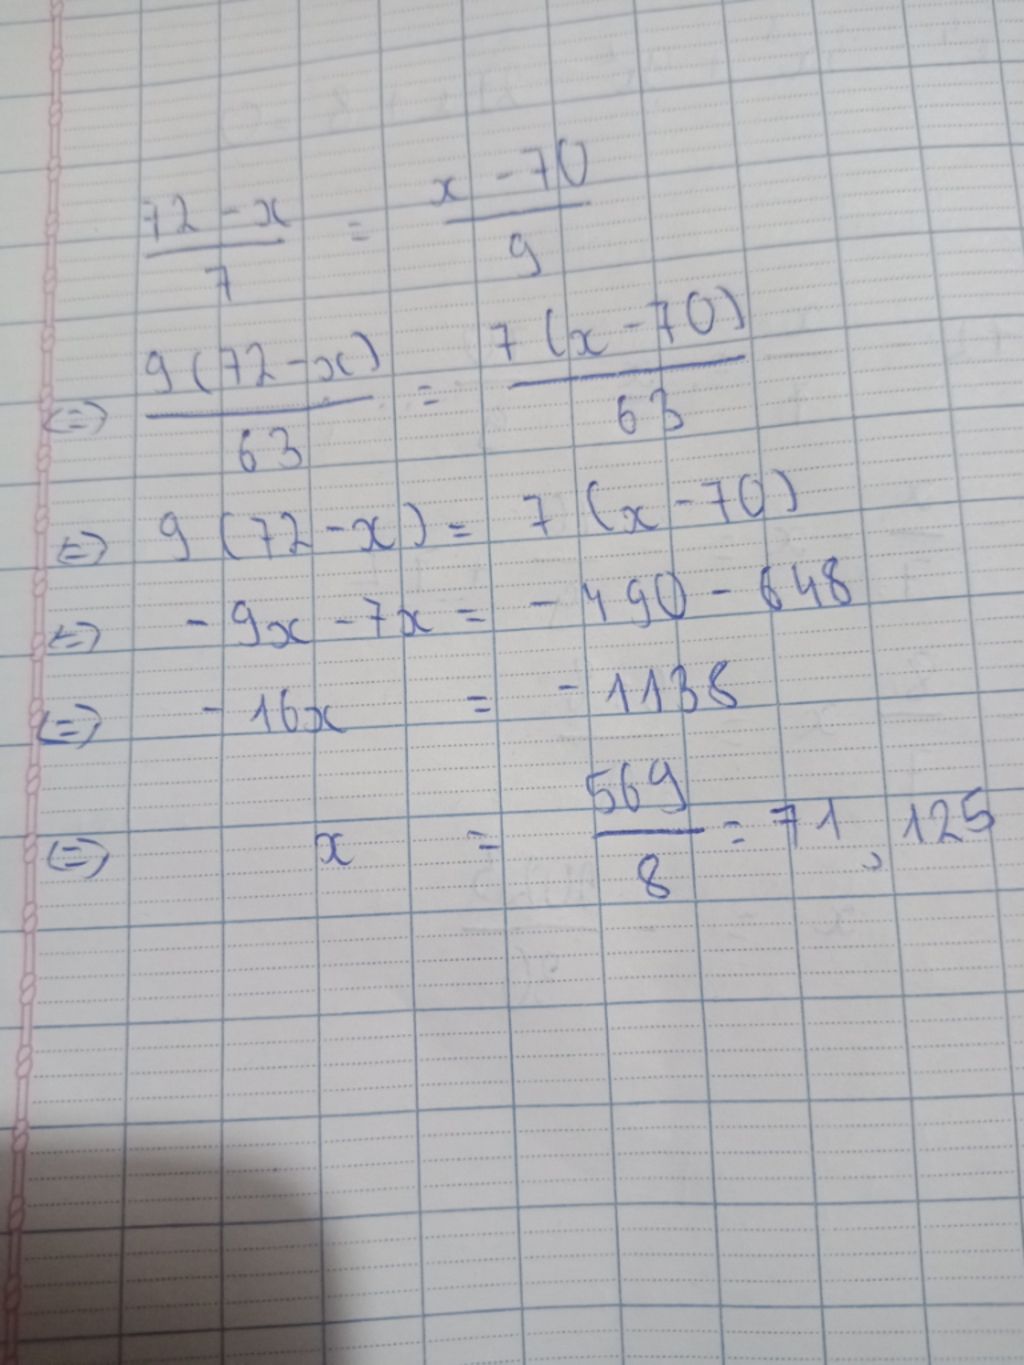 72 - x / 7 = x - 70 / 9
<=> 9(72 - x) / 63 = 7(x - 70) / 63
<=> 9(72 - x) = 7(x - 70)
<=> - 9x - 7x = - 490 - 648
<=> - 16x = - 1138
<=> x = 569 / 8 = 71,125